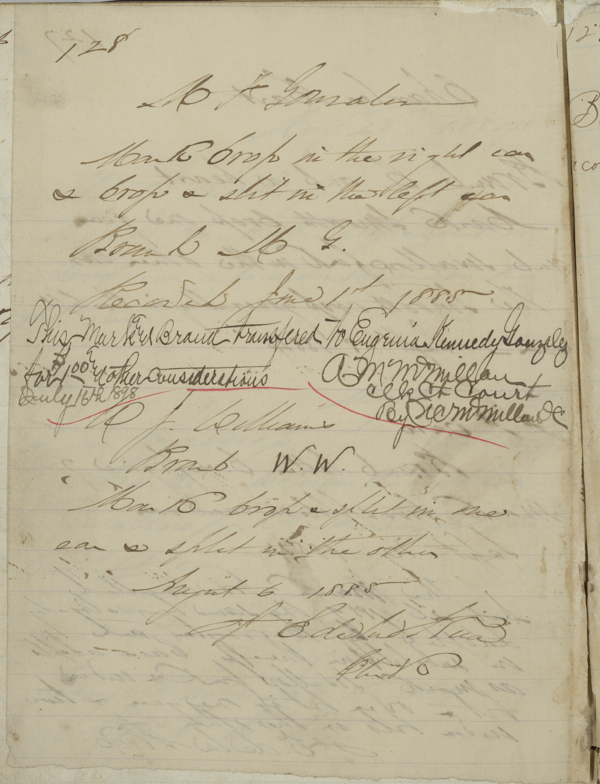 128
M F Gonzales
Mark Crop in the right ear
& Crop & slit in the left ear
Brand M G.
Recorded June 1st 1885
This Mark & Brand transfered to Eugenia Kennedy Gonzley
for $1.00 & other Considerations
July 16th 1898
A M McMillan
Clk Ct Court
By McMillan DC
R J Williams
Brand W. W.
Mark Crop & split in one
ear & split in the other
August 6 1885
Clerk